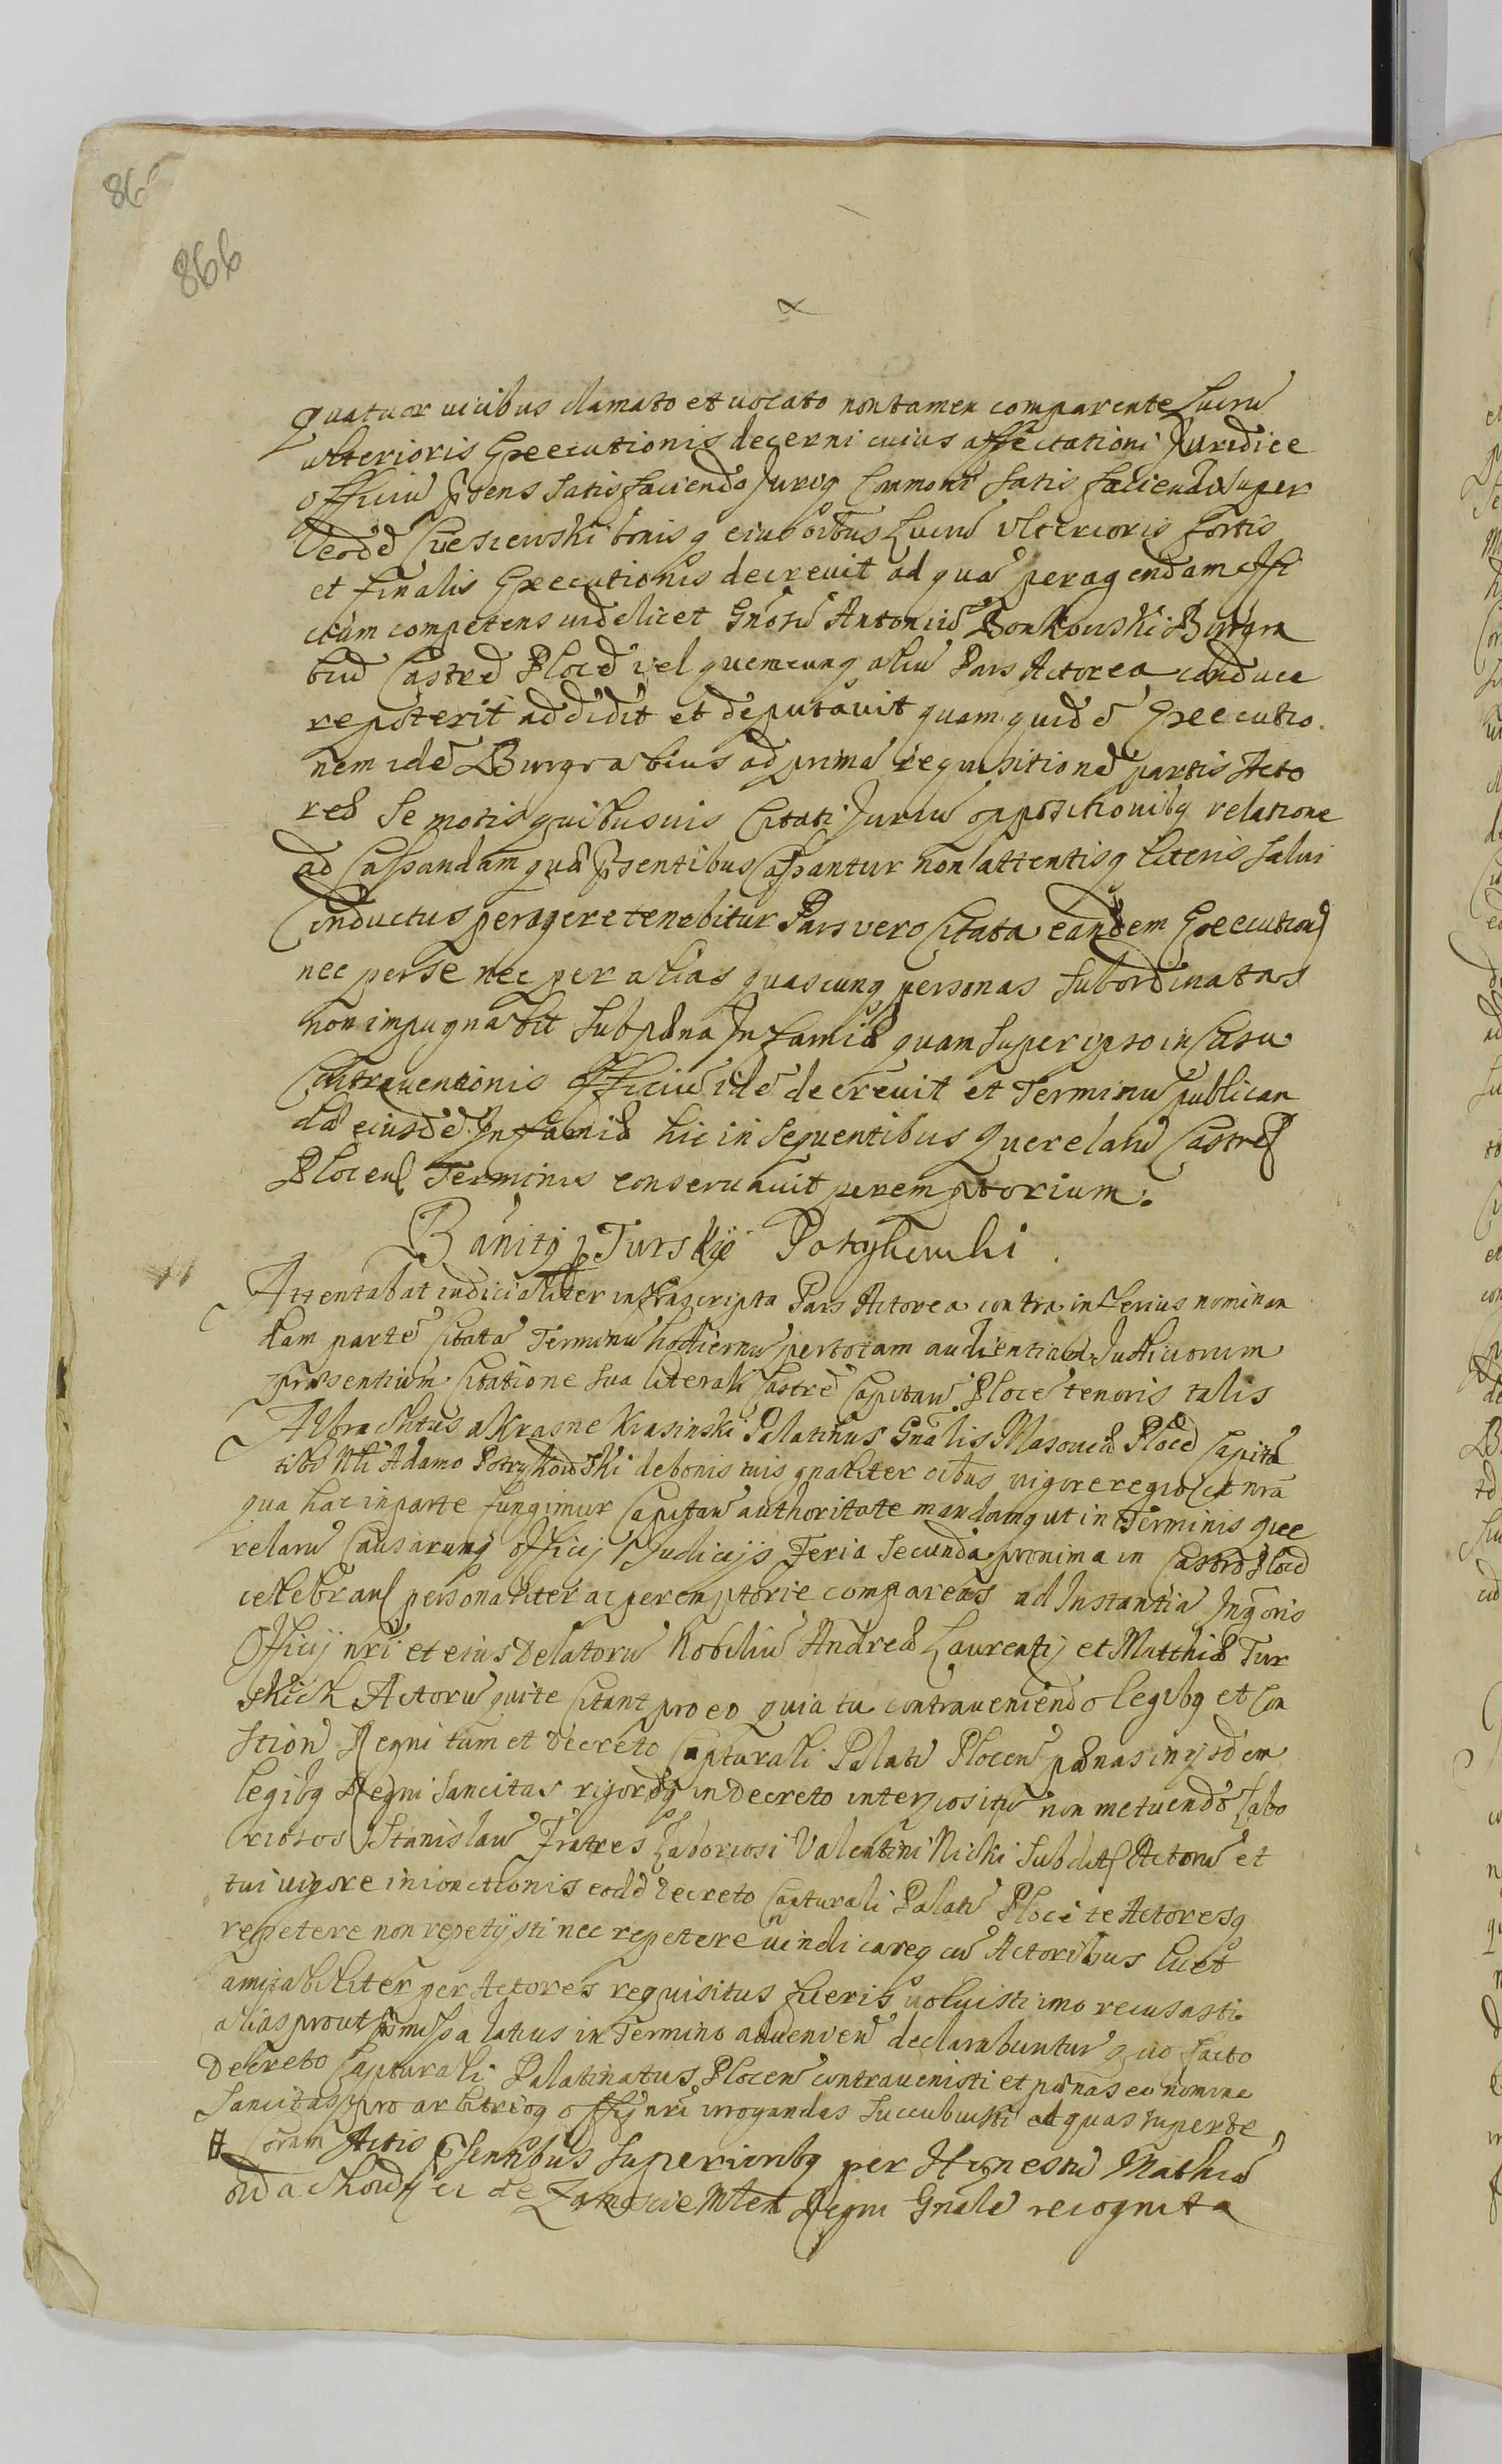 86
866
quatuor vicibus clamato et vocato non tamen comparente Lucru
ulterioris Executionis decerni cuius affectationi Juridice
officiu pñtens satisfaciendo Juriq Communi satis faciendo super
eodẽ Cieszewski bonis q eius oibus Lucru Ulterioris fortis
et finalis Executionis decrevit ad quã peragendam offi
cium competens videlicet Gnosũ Antoniũ Bonkowski Burgra
biũ Castrẽ Plocẽ vel quemcunq aliũ Pars Actorea conduce
re poterit addidit et deputavit quam quidẽ Executio
nem idẽ Burgrabius ad primã requisitionẽ partis Acto
reæ Se motis quibusuis Citati Juriũ oppositionibq relatione
ad Cassandam quã pñsentibus Cassantur non attentisq literis salvi
Conductus peragere tenebitur Pars vero Citata eandem Execution
nec per se nec per alias quascunq personas subordinatas
non impugnabit sub pæna Infamiæ quam super ipso in Casu
Contraventionis Officiũ idẽ decrevit et Terminũ publican
dæ eiusdẽ Infamiæ hic in sequentibus Querelarũ Castren
Plocen Terminis conservavit peremptorium.
Banity p Turskie Potrykowski
Attentabat iudicialiter infrascripta Pars Actorea contra inferius nominan
dam partẽ Citatã Terminũ hodiernũ per totam audientiam Judiciorum
præsentium Citatione sua literali Castrẽ Capitanũ Plocẽ tenoris talis
Albrachtus a Krasne Krasinski Palatinus Gnãlis Masoviæ Plocẽ Capitã
tibi Nli Adamo Potrykowski de bonis tuis gnaliter oibus vigore regio et nrã
qua hac in parte fungimur Capitanũ authoritate mandamq ut in Terminis Que
relarũ Causarunq officij Judicijs Feria Secunda proxima in Castro Plocẽ
celebran personaliter ac peremptorie compareas ad Instantiã Ingoris
Officij nri et eius Delatorũ Nobiliũ Andreæ Laurentij et Matthiæ Tur
skich Actorũ qui te Citant pro eo quia tu contraveniendo legibq et Con
stion Regni tum et decreto Capturali Palatũ Plocen pænas in ijsdem
legibq Regni sancitas rigorẽq in decreto interpositũ non metuendo Labo
riosos Stanislaũ Fratres Laboriosi Valentini Nicki subdit Actorũ et
tui vigore iniunctionis eodẽ decreto Capturali Palatũ Plocẽ te Actoresq
repetere non repetijsti nec repetere vindicareq cũ Actoribus licet
amicabiliter per Actores requisitus fueris voluisti imo recusasti
alias prout pmissa latius in Termino advenien declarabuntur quo facto
Decreto Capturali Palatinatus Plocen contravenisti et pænas eo nomine
Sancitas pro arbitrioq offij nri irrogandas succubuisti ad quas super te
Coram Actis pñsentibus superioribq per Honestũ Mathiã
de Zamoscie Mlem Regni Gnalẽ recognita